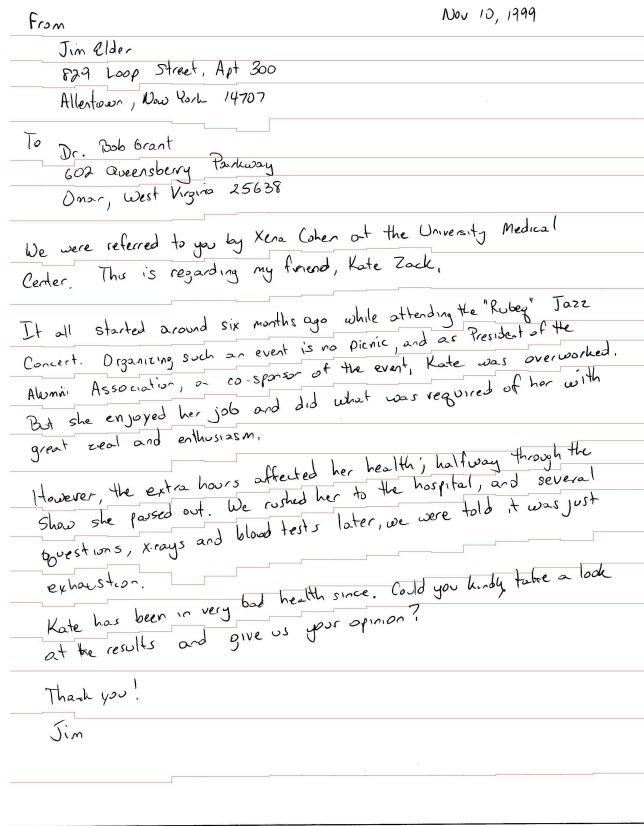 Nov 10, 1999
From
Jim Elder
829 Loop Street, Apt 300
Allentown, New York 14707
To
Dr. Bob Grant
602 Queensberry Parkway
Omar, West Virginia 25638
We were referred to you by Xena Cohen at the University Medical
Center. This is regarding my friend, Kate Zack.
It all started around six months ago while attending the "Rubeq" Jazz
Concert. Organizing such an event is no picnic, and as President of the
Alumni Association, a co-sponsor of the event, Kate was overworked.
But she enjoyed her job and did what was required of her with
great zeal and enthusiasm.
However, the extra hours affected her health; halfway through the
show she passed out. We rushed her to the hospital, and several
questions, x-rays and blood tests later, we were told it was just
exhaustion.
Kate has been in very bad health since. Could you kindly take a look
at the results and give us your opinion?
Thank you!
Jim